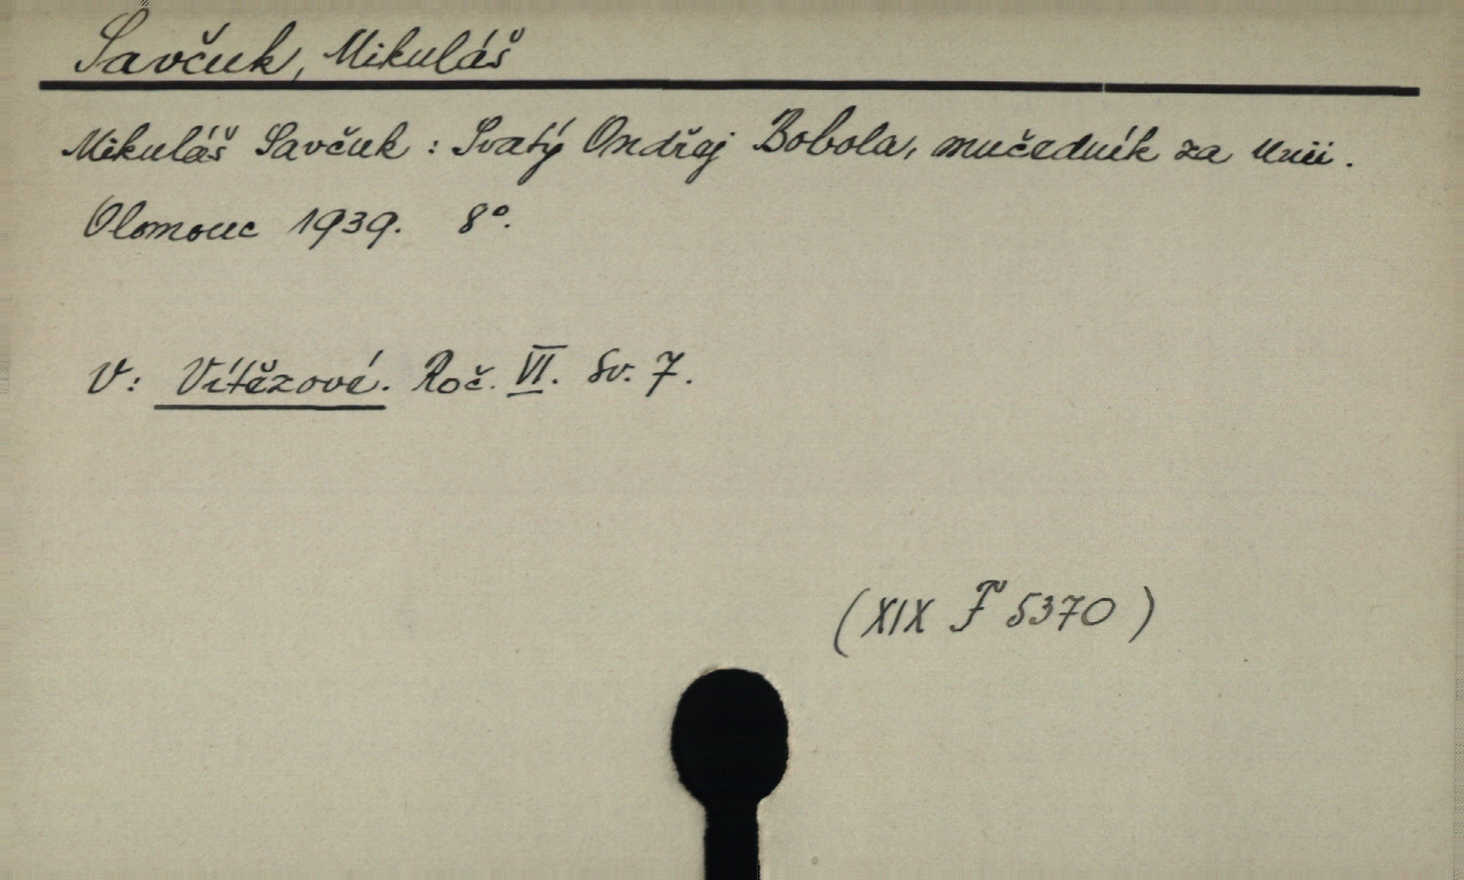 Savčuk, Mikuláš
Mikuláš Savčuk : Svatý Ondřej Bobola, mučedník za Unii.
Olomouc 1939. 8°.
V: Vítězové. Roč. VI. Sv. 7.
(XIX F 5370)